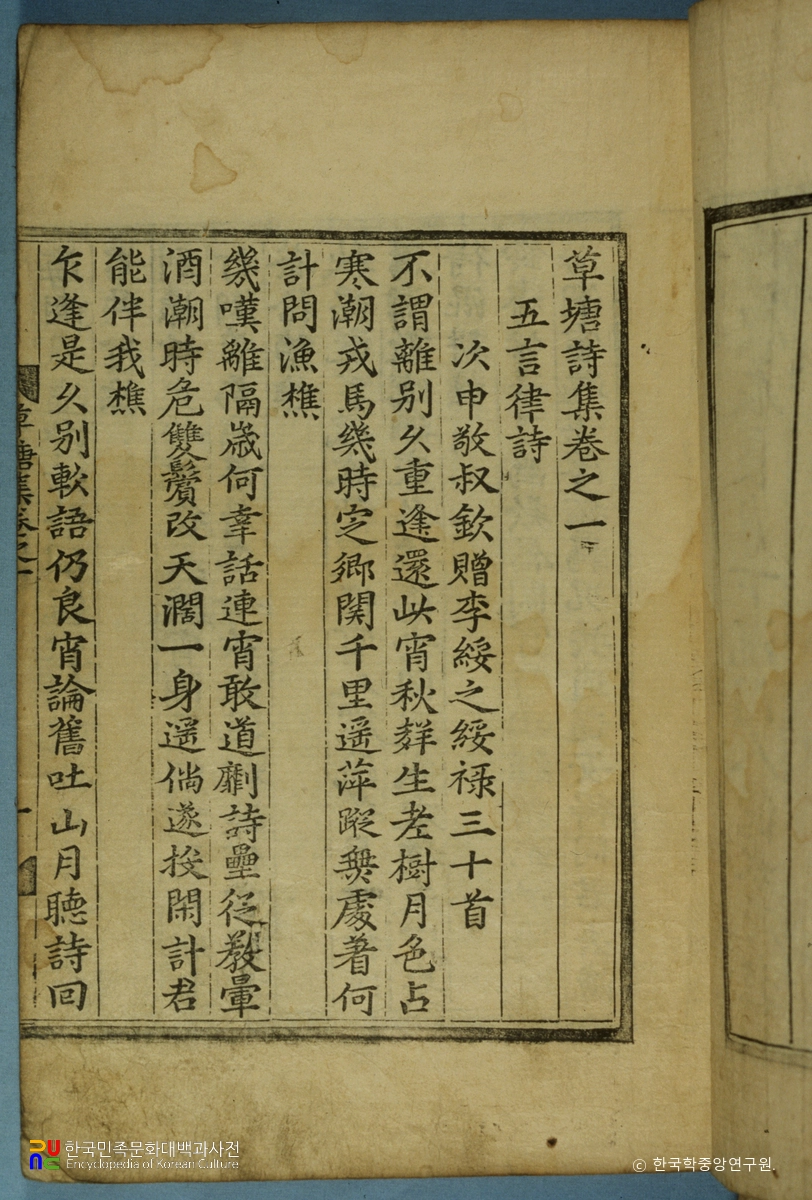 草塘詩集卷之一
五言律詩
次申敬叔欽贈李綏之綏祿三十首
不謂離別久重逢還此宵秋蛘生老樹月色占
寒潮戎馬幾時定鄕關千里遥萍蹤無處着何
計問漁樵
幾嘆離隔歲何幸話連宵敢道劘詩壘從敎暈
酒潮時危雙鬢改天濶一身遥倘遂投閑計君
能伴我樵
乍逢是久別軟語仍良宵論舊吐山月聽詩回
草塘集卷之一
一
한국민족문화대백과사전
Encyclopedia of Korean Culture
© 한국학중앙연구원.